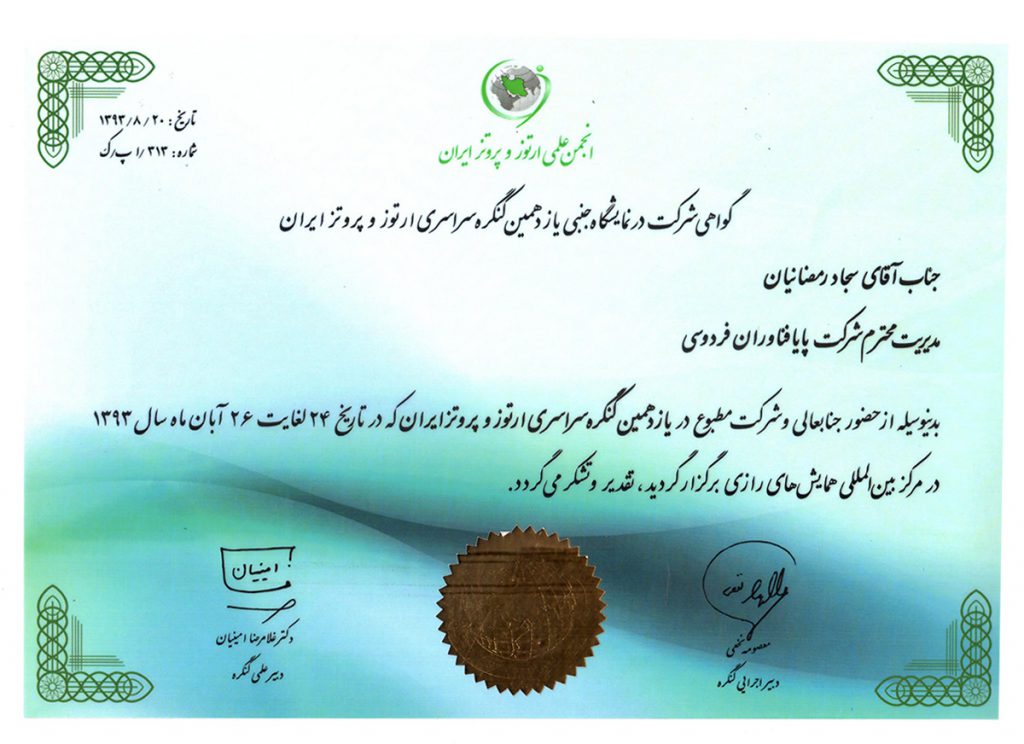 تاریخ: ۱۳۹۳/۸/۲۰
شماره: ۳۱۳/ا پ/ک
انجمن علمی ارتوز و پروتز ایران
گواهی شرکت در نمایشگاه جنبی یازدهمین کنگره سراسری ارتوز و پروتز ایران
جناب آقای سجاد رمضانیان
مدیریت محترم شرکت پایا فناوران فردوسی
بدینوسیله از حضور جنابعالی و شرکت مطبوع در یازدهمین کنگره سراسری ارتوز و پروتز ایران که در تاریخ ۲۴ لغایت ۲۶ آبان ماه سال ۱۳۹۳
در مرکز بین‌المللی همایش‌های رازی برگزار گردید، تقدیر و تشکر می‌گردد.
معصومه
دبیر اجرایی کنگره
امینیان
دکتر غلامرضا امینیان
دبیر علمی کنگره